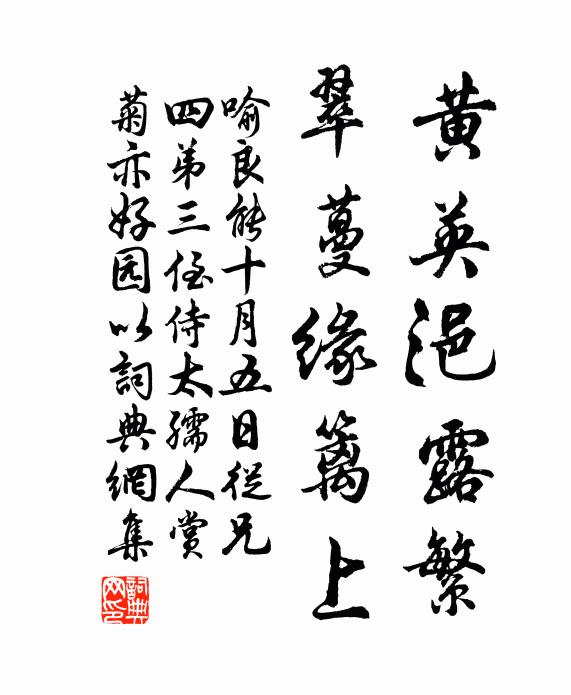 黄英浥露繁
翠蔓缘篱上
喻良能十月五日從兄
四弟三侄侍太孺人赏
菊亦好园以詞典網集
詞典网印